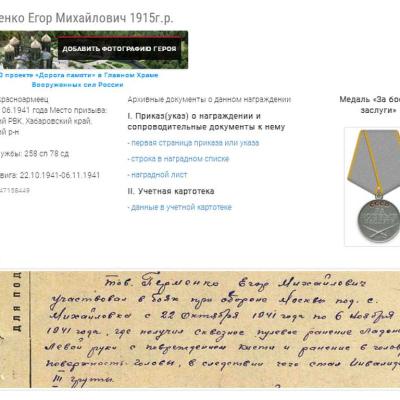 енко Егор Михайлович 1915г.р.
ДОБАВИТЬ ФОТОГРАФИЮ ГЕРОЯ
О проекте «Дорога памяти» в Главном Храме
Вооруженных сил России
красноармеец
06.1941 года Место призыва:
ий РВК, Хабаровский край,
ий р-н
ужбы: 258 сп 78 сд
вига: 22.10.1941-06.11.1941
47158449
Архивные документы о данном награждении
I. Приказ(указ) о награждении и
сопроводительные документы к нему
- первая страница приказа или указа
- строка в наградном списке
- наградной лист
II. Учетная картотека
- данные в учетной картотеке
Медаль «За бое
заслуги»
для под
Тов. Перменко Егор Михайлович
участвовал в боях при обороне Москвы под. с.
Михайловка с 22 октября 1941 года по 6 ноября
1941 года, где получил сквозное пулевое ранение
Левой руки с повреждением кисти и ранение в голов
поверхность головы, в следствии чего стал Инвалид
III группы.